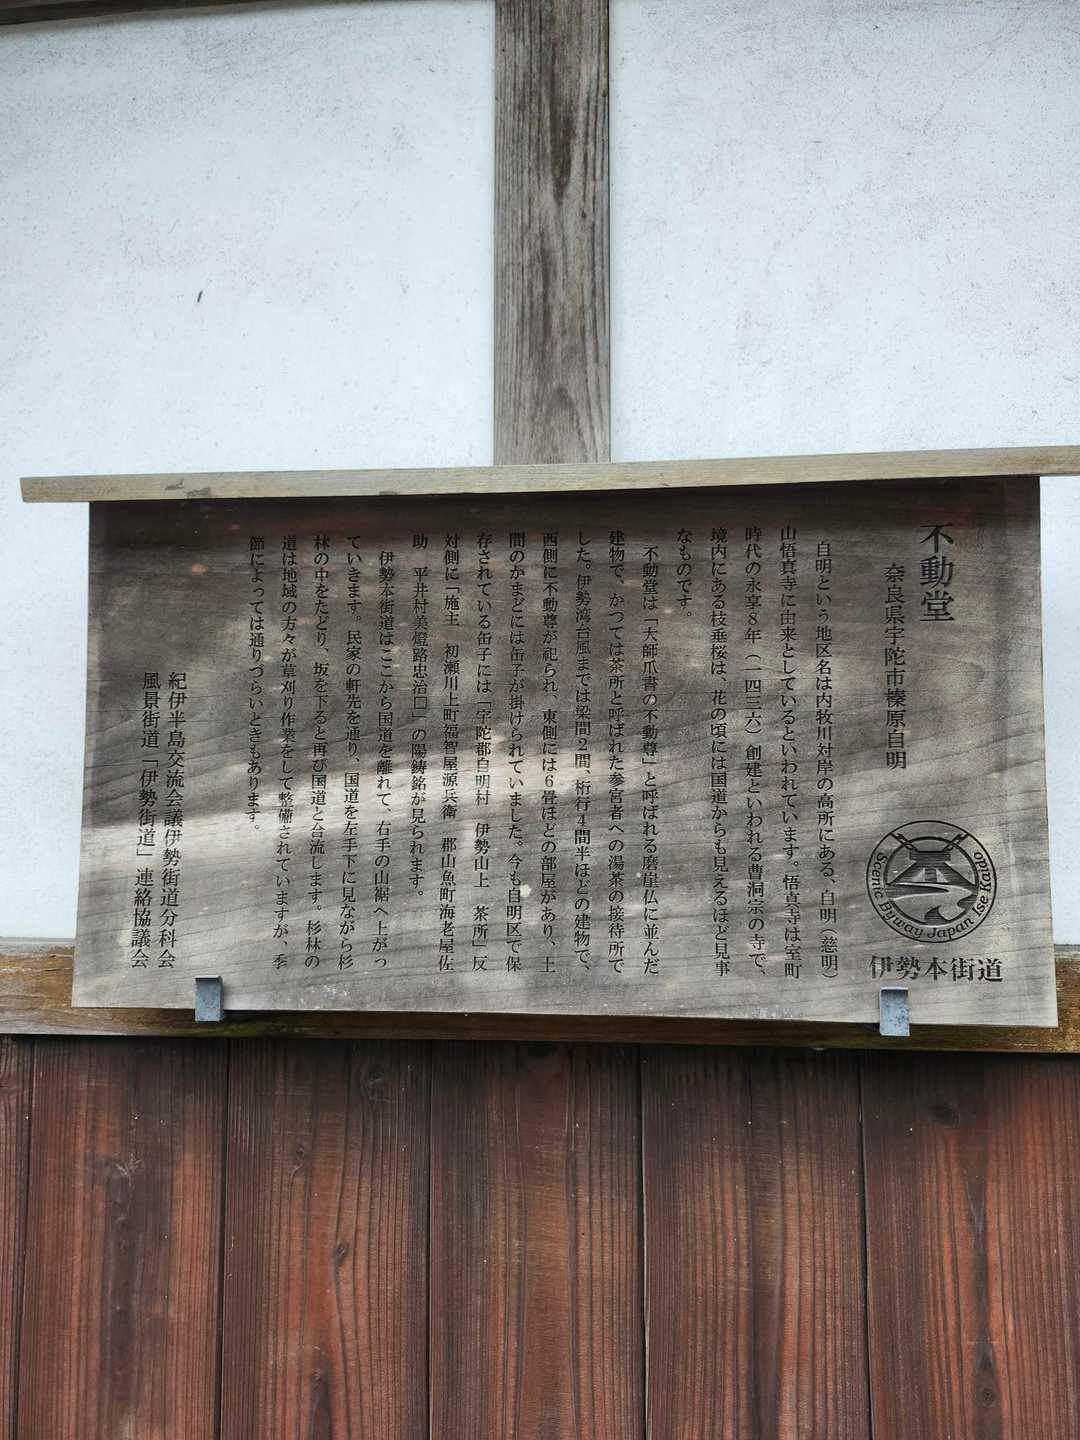 不動堂
奈良県宇陀市榛原自明
Scenic Byway Japan Ise Kaido
伊勢本街道
自明という地区名は内牧川対岸の高所にある、自明（慈明）
山悟真寺に由来としているといわれています。悟真寺は室町
時代の永享8年（一四三六）創建といわれる曹洞宗の寺で、
境内にある枝垂桜は、花の頃には国道からも見えるほど見事
なものです。
不動堂は「大師爪書の不動尊」と呼ばれる磨崖仏に並んだ
建物で、かつては茶所と呼ばれた参宮者への湯茶の接待所で
した。伊勢湾台風までは梁間2間、桁行4間半ほどの建物で、
西側に不動尊が祀られ、東側には6畳ほどの部屋があり、土
間のかまどには缶子が掛けられていました。今も自明区で保
存されている缶子には「宇陀郡自明村　伊勢山上　茶所」反
対側に「施主　初瀬川上町福智屋源兵衛　郡山魚町海老屋佐
助　平井村美燈路忠治□」の陽鋳銘が見られます。
伊勢本街道はここから国道を離れて、右手の山裾へ上がっ
ていきます。民家の軒先を通り、国道を左手下に見ながら杉
林の中をたどり、坂を下ると再び国道と合流します。杉林の
道は地域の方々が草刈り作業をして整備されていますが、季
節によっては通りづらいときもあります。
紀伊半島交流会議伊勢街道分科会
風景街道「伊勢街道」連絡協議会